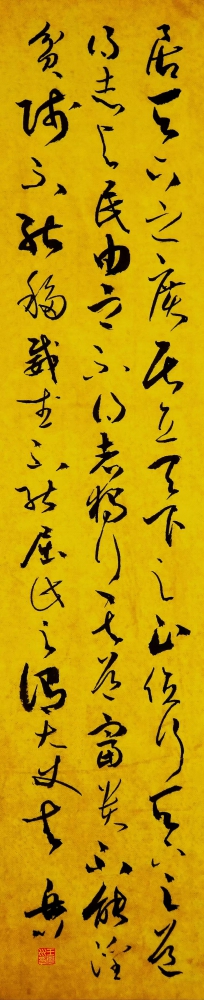 居天下之广居立天下之正位行天下之大道
得志与民由之不得志独行其道富贵不能淫
贫贱不能移威武不能屈此之谓大丈夫